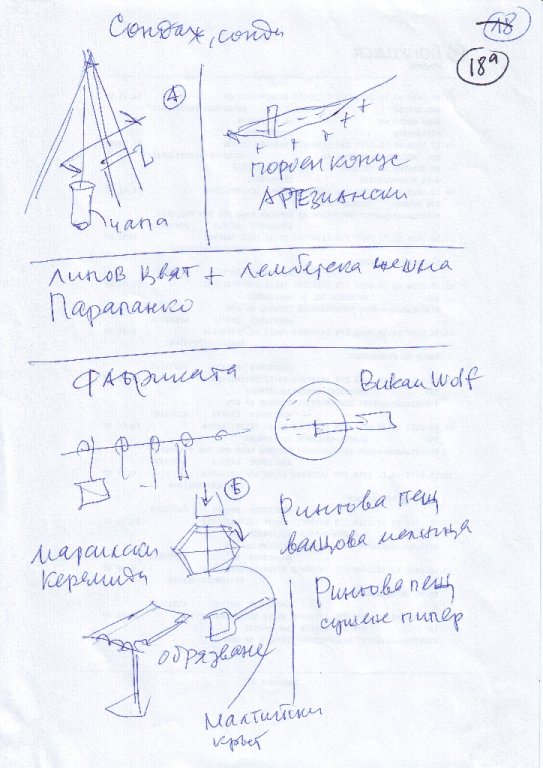 Сондаж, сонди
18
18а
А
чапа
пороен конус
Артезиански
Липов цвят +
Парапанко
Фабриката
Викан Wolf
Б
Рингова пещ
валцова мелница
марсилски
керемиди
Рингова пещ
сушене пипер
обрязване
Малтийски
кръст